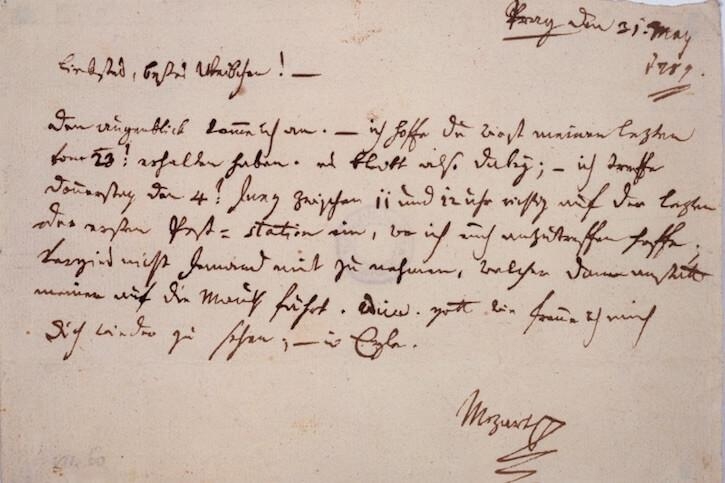 Prag den 31:t May
1789.
liebstes, bestes Weibchen! —
Den augenblick komme ich an. — ich hoffe du wirst meinen letzten
vom 23:t erhalten haben. es bleibt also dabey; — ich treffe
Donnerstag den 4:t Juny zwischen 11 und 12 uhr richtig auf der letzten
oder ersten Post=station ein, wo ich euch anzutreffen hoffe;
vergiss nicht Jemand mit zu nehmen, welcher dann anstatt
meiner auf die Mauth fährt. Adieu. gott wie freue ich mich
Dich wieder zu sehen; —
Mozart